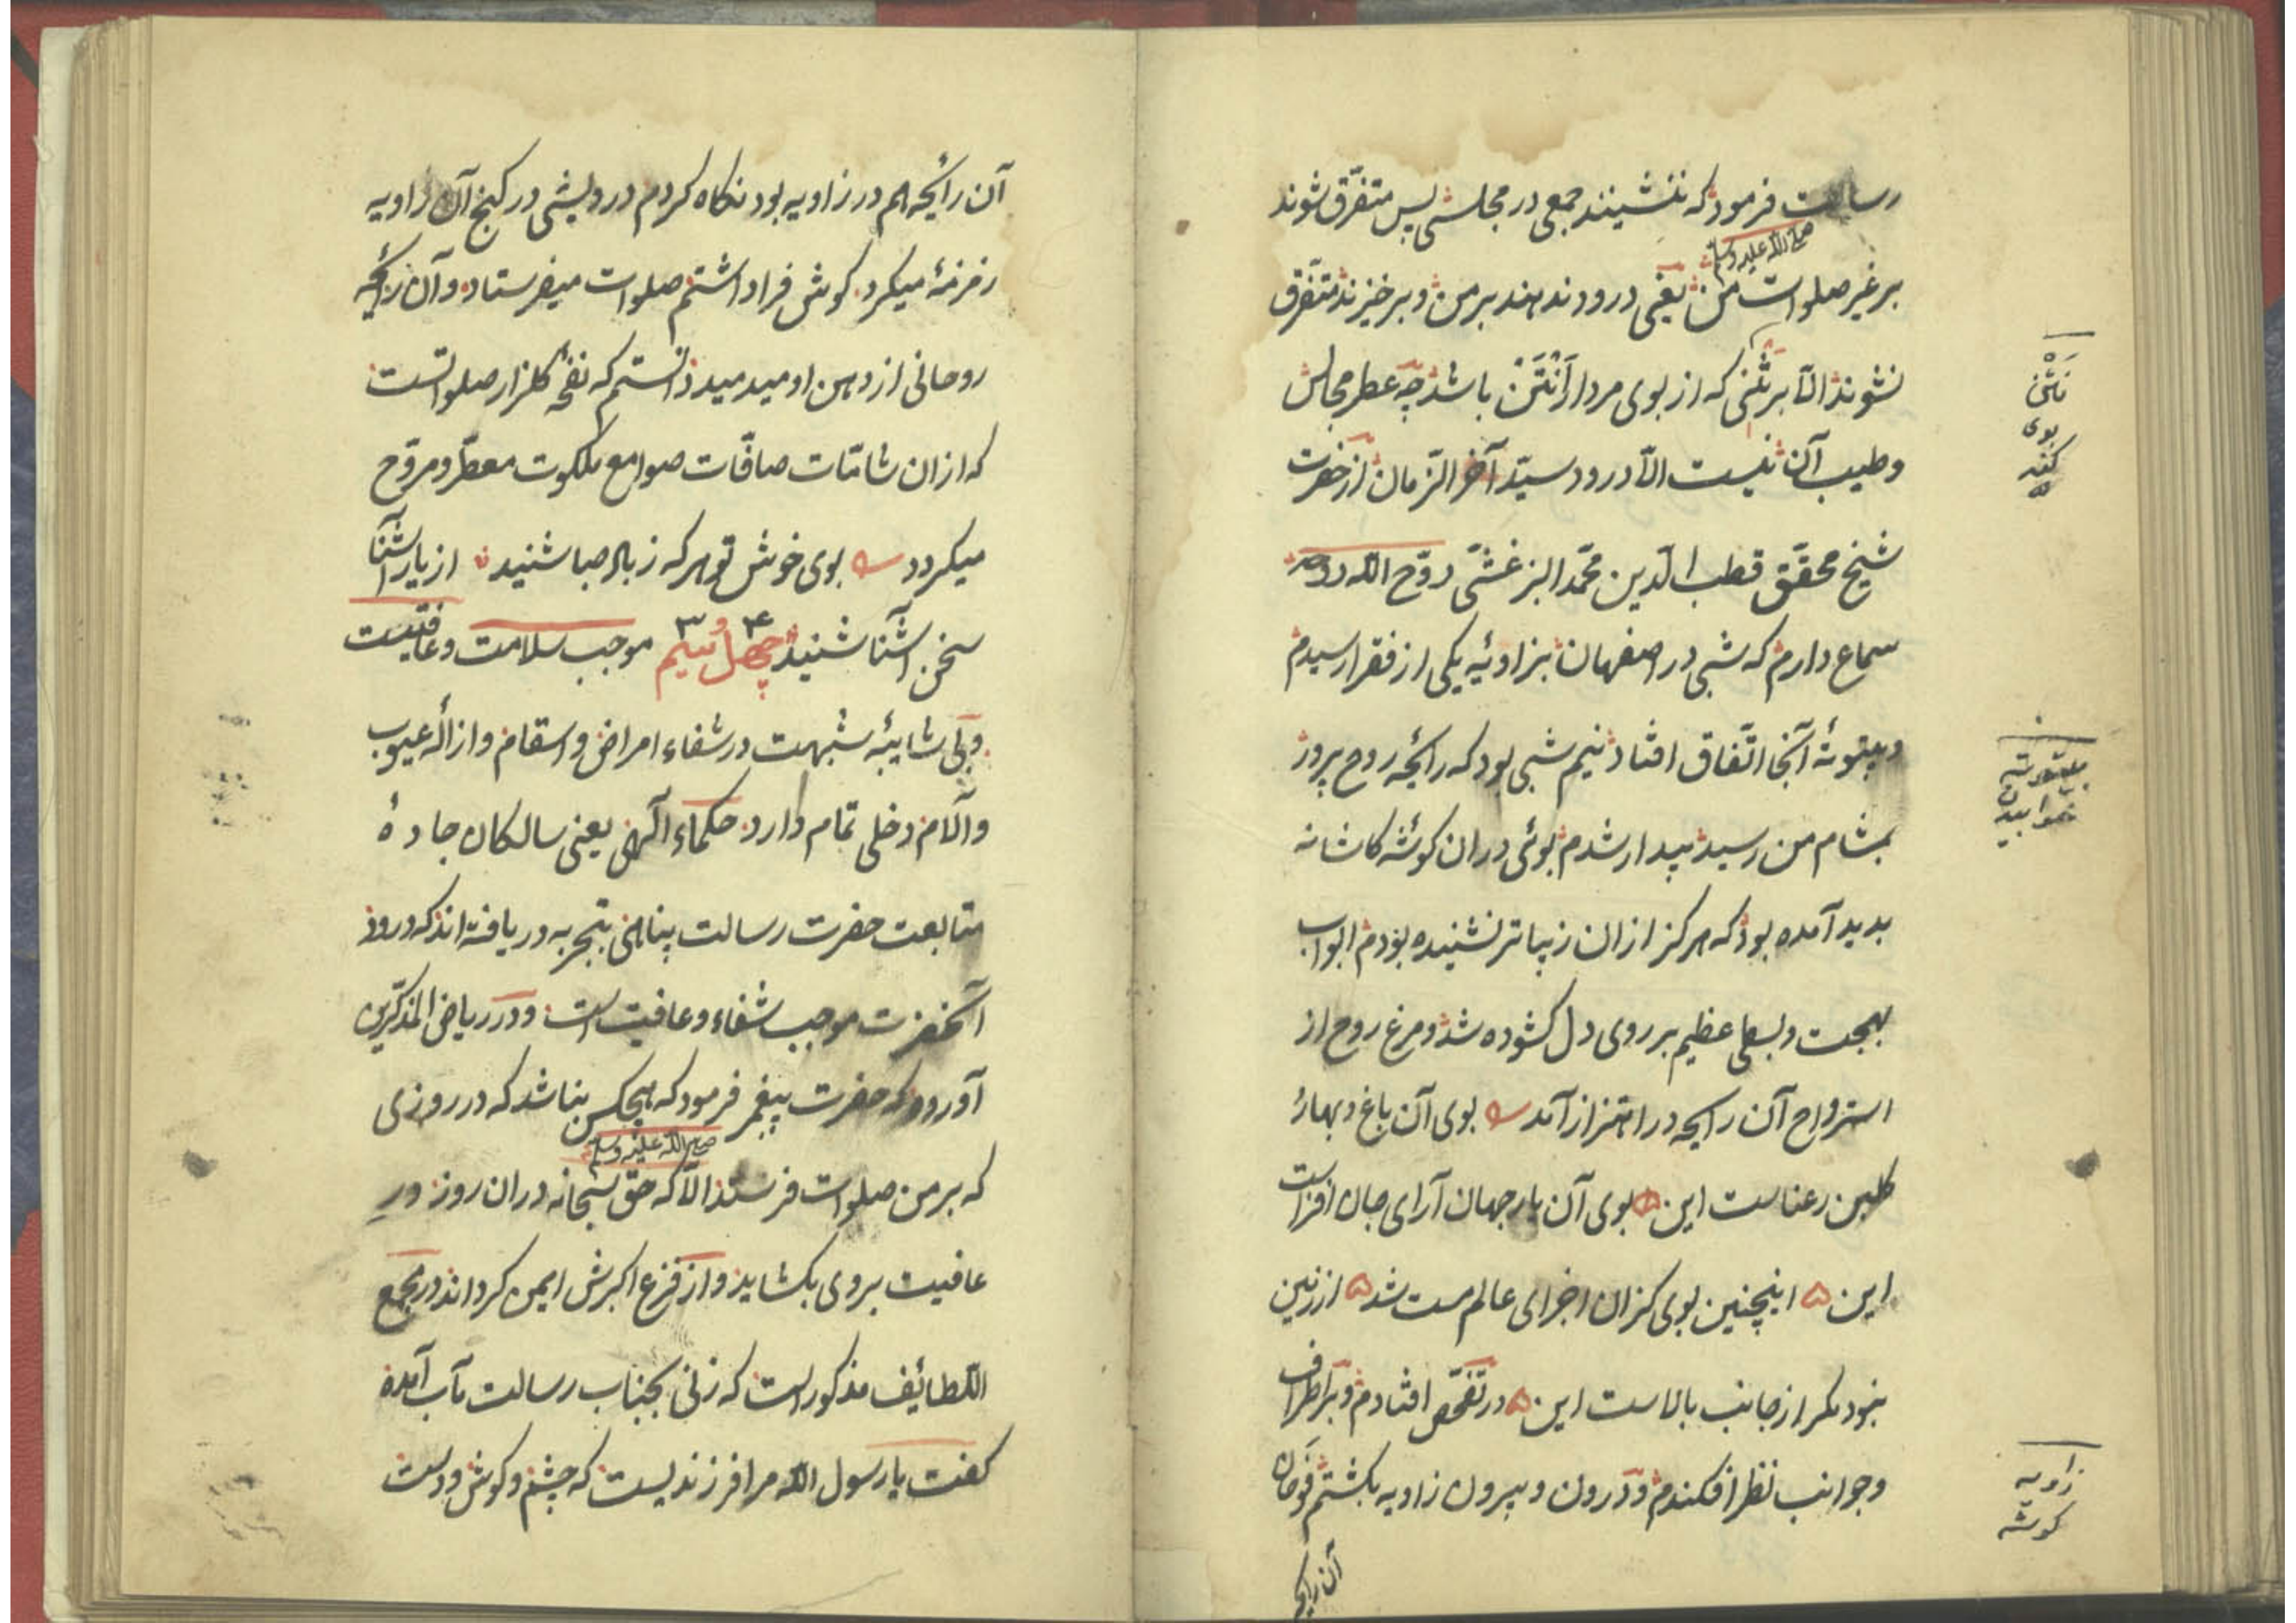 رسالت فرمود که ننشینند جمعی در مجلسی پس متفرّق شوند
صلی الله علیه وسلم
بر غیر صلوات من یعنی درود ندهند بر من و برخیزند متفرّق
نشوند الّا بر نتنی که از بوی مردار اَنْتَن باشد چه عطر مجالس
و طیب آن نیست الّا درود سیّد آخر الزّمان از حضرت
شیخ محقّق قطب الدّین محمّد البزغشی روّح الله روحه
سماع دارم که شبی در اصفهان بزاویهٔ یکی از فقرا رسیدم
و بیتوتهٔ آنجا اتّفاق افتاد نیم شبی بود که رائحهٔ روح پرور
بمشام من رسید بیدار شدم بوئی در ان کوشهٔ کاشانه
بدید آمده بود که هرکز از ان زیباتر نشنیده بودم ابواب
بهجت و بسطی عظیم بر روی دل کشوده شد و مرغ روح از
استرواح آن رایحه در اهتزاز آمد بوی آن باغ و بهار
کلبن رعناست این بوی آن یار جهان آرای جان افزاست
این اینچنین بوی کزان اجزای عالم مست شد از زمین
نبود مکر از جانب بالاست این در تفحّص افتادم و بر اطراف
و جوانب نظر افکندم و درون و بیرون زاویه بکشتم فوحان
آن رایحه
نَتْن
بوی
کنده
بیتوته
خوابیدن
زاویه
کوشه
آن رائحه هم در زاویه بود نکاه کردم درویشی در کنج آن زاویه
زمزمهٔ میکرد کوش فرا داشتم صلوات میفرستاد و آن رائحهٔ
روحانی از دهن او میدمید دانستم که نفحهٔ کلزار صلواتست
که از ان شامّات صافّات صوامع ملکوت معطّر و مروّح
میکردد بوی خوش تو هر که ز باد صبا شنید از یار آشنا
سخن آشنا شنید چهل و سیم ۴۳ موجب سلامت و عافیتست
و بی شایبهٔ شبهت در شفاء امراض و اسقام و ازالهٔ عیوب
و آلام دخلی تمام دارد حکماء الٓهی یعنی سالکان جادهٔ
متابعت حضرت رسالت پناهی بتجربه دریافته اند که درود
آنحضرت موجب شفاء و عافیت است و در ریاض المذکّرین
آورده که حضرت پیغمبر فرمود که هیچکس نباشد که در روزی
صلی الله علیه وسلم
که بر من صلوات فرستد الّا که حق سبحانه دران روز در
عافیت بروی بکشاید و از فزع اکبرش ایمن کرداند در مجمع
اللّطائف مذکور است که زنی بجناب رسالت مآب آمده
کفت یا رسول الله مرا فرزندیست که چشم و کوش و دست